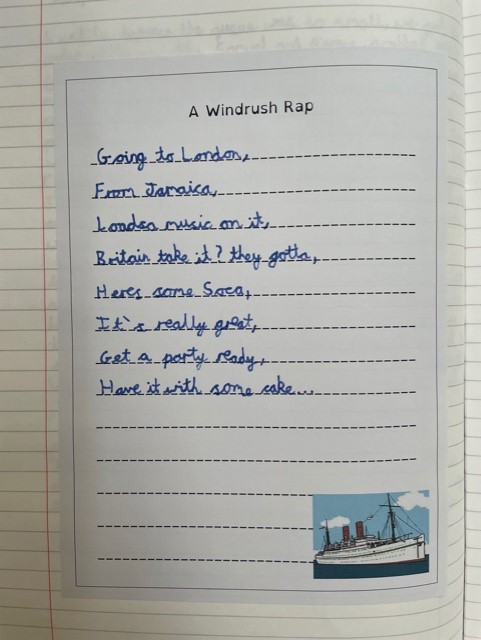 A Windrush Rap
Going to London,
From Jamaica,
Loadsa music on it,
Britain take it? they gotta,
Heres some Soca,
It's really great,
Get a party ready,
Have it with some cake...